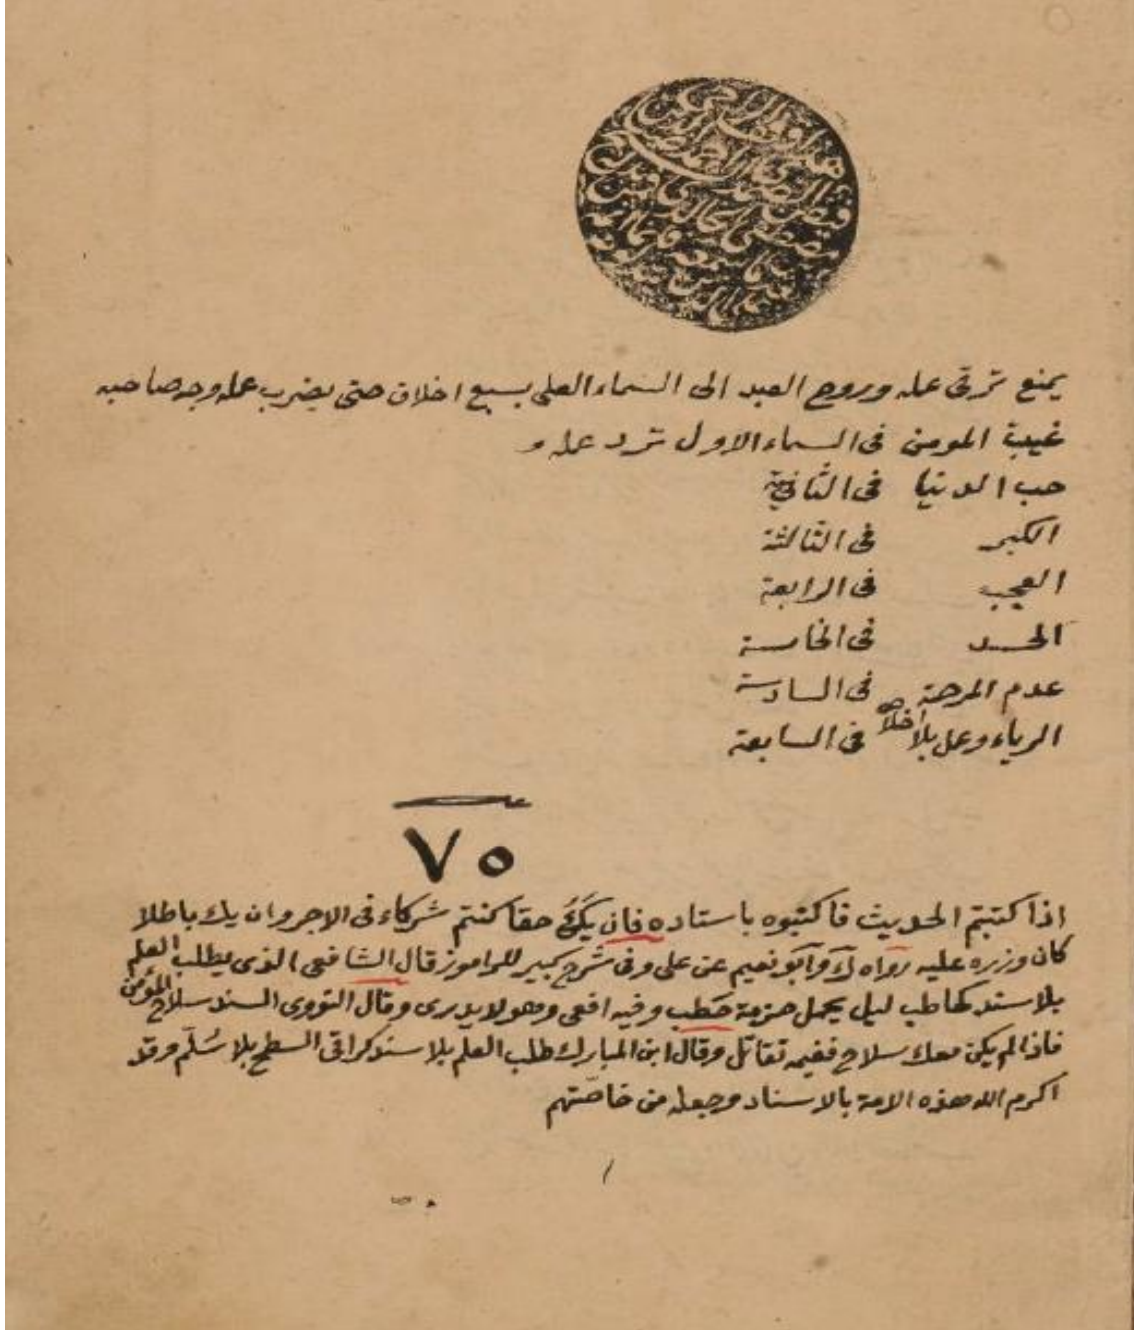 يمنع ترقى عمله وروح العبد الى السماء العلى بسبع اخلاق حتى يضرب عمله وجه صاحبه
غيبة المومن فى السماء الاول ترد عمله و
حب الدنيا فى الثانية
الكبر فى الثالثة
العجب فى الرابعة
الحسد فى الخامسة
عدم المرحمة فى السادسة
الرياء وعمل بلا اخلاص فى السابعة
٧٥
اذا كتبتم الحديث فاكتبوه باسناده فان يَكُ حقا كنتم شركاء فى الاجر وان يك باطلا
كان وزره عليه رواه ك وابو نعيم عن على وفى شرح كبير للراموز قال الشافعى الذى يطلب العلم
بلا سند كحاطب ليل يحمل حزمة حَطب وفيه افعى وهو لا يدرى وقال النووى السند سلاح المؤمن
فاذا لم يكن معك سلاح ففيم تقاتل وقال ابن المبارك طلب العلم بلا سند كراقى السطح بلا سُلّم وقد
اكرم الله هذه الامة بالاسناد وجعله من خاصّتهم